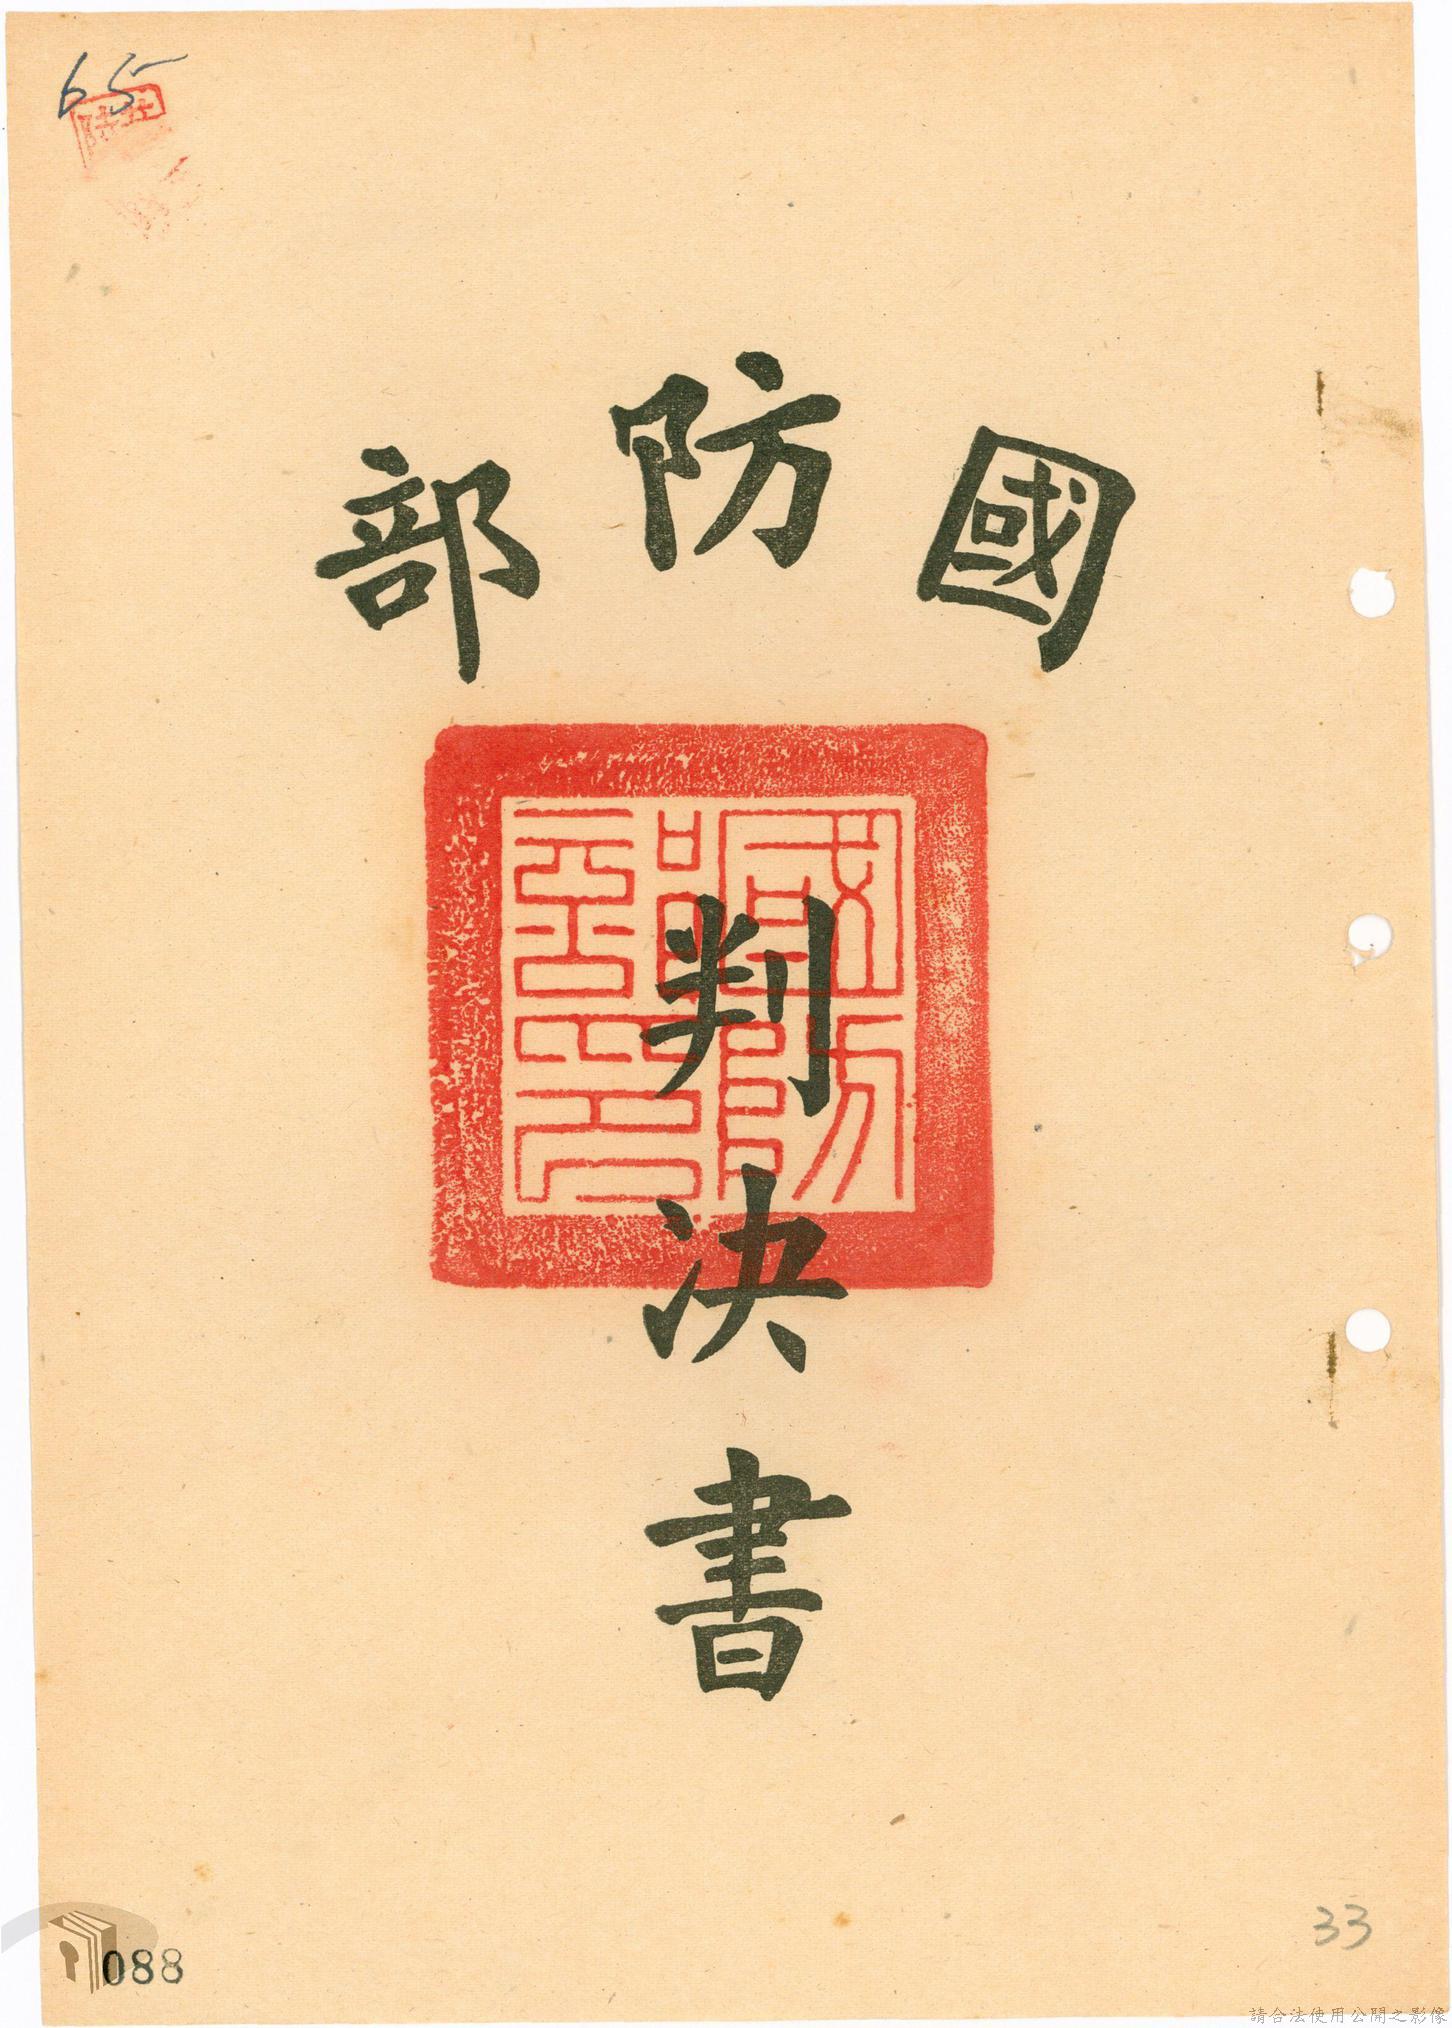 65
國防部
國防部印
判決書
33
088
請合法使用公開之影像